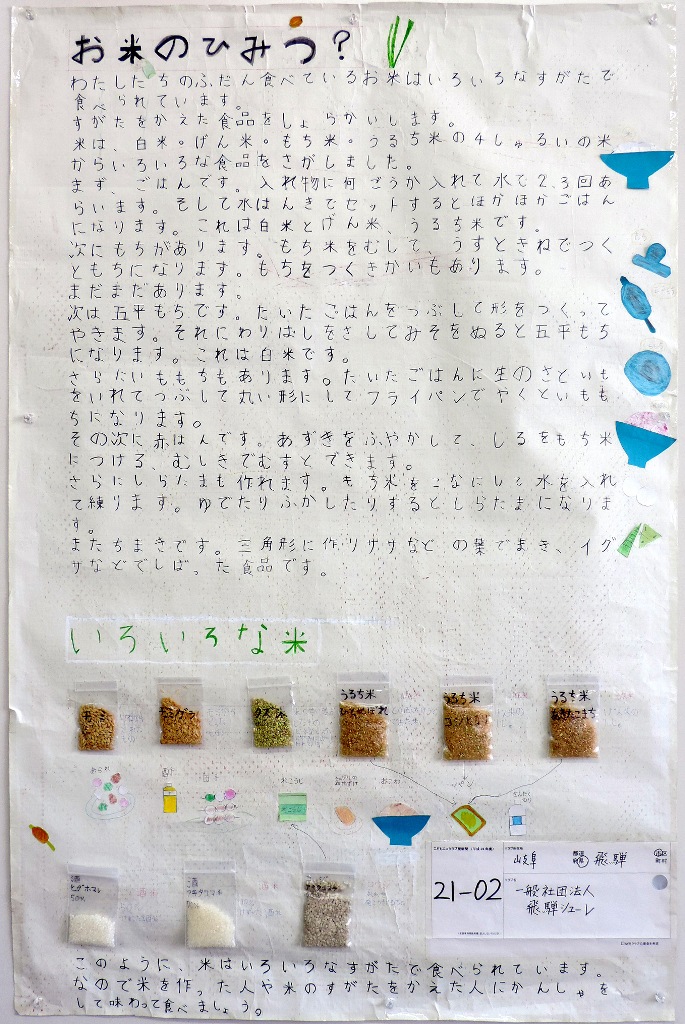 お米のひみつ?
わたしたちのふだん食べているお米はいろいろなすがたで
食べられています。
すがたをかえた食品をしょうかいします。
米は、白米・げん米・もち米・うるち米の4しゅるいの米
からいろいろな食品をさがしました。
まず、ごはんです。入れ物に何ごうか入れて水で2、3回あ
らいます。そして水はんきでセットするとほかほかごはん
になります。これは白米とげん米、うるち米です。
次にもちがあります。もち米をむして、うすときねでつく
ともちになります。もちをつくきかいもあります。
まだまだあります。
次は五平もちです。たいたごはんをつぶして形をつくって
やきます。それにわりばしをさしてみそをぬると五平もち
になります。これは白米です。
さらにいももちもあります。たいたごはんに生のさといも
をいれてつぶして丸い形にしてフライパンでやくといもも
ちになります。
その次に赤はんです。あずきをふやかして、しるをもち米
につける、むしきでむすとできます。
さらにしらたまも作れます。もち米をこなにして水を入れ
て練ります。ゆでたりふかしたりするとしらたまになりま
す。
またちまきです。三角形に作りササなどの葉でまき、イグ
サなどでしばった食品です。
いろいろな米
もみ
モミガラ
うるち米
ひとめぼれ
うるち米
コシヒカリ
うるち米
あきたこまち
米こうじ
おこわ
パン
酒
ヒダホマレ
50%
酒
21-02
岐阜
飛騨
一般社団法人
飛騨シューレ
このように、米はいろいろなすがたで食べられています。
なので米を作った人や米のすがたをかえた人にかんしゃを
して味わって食べましょう。